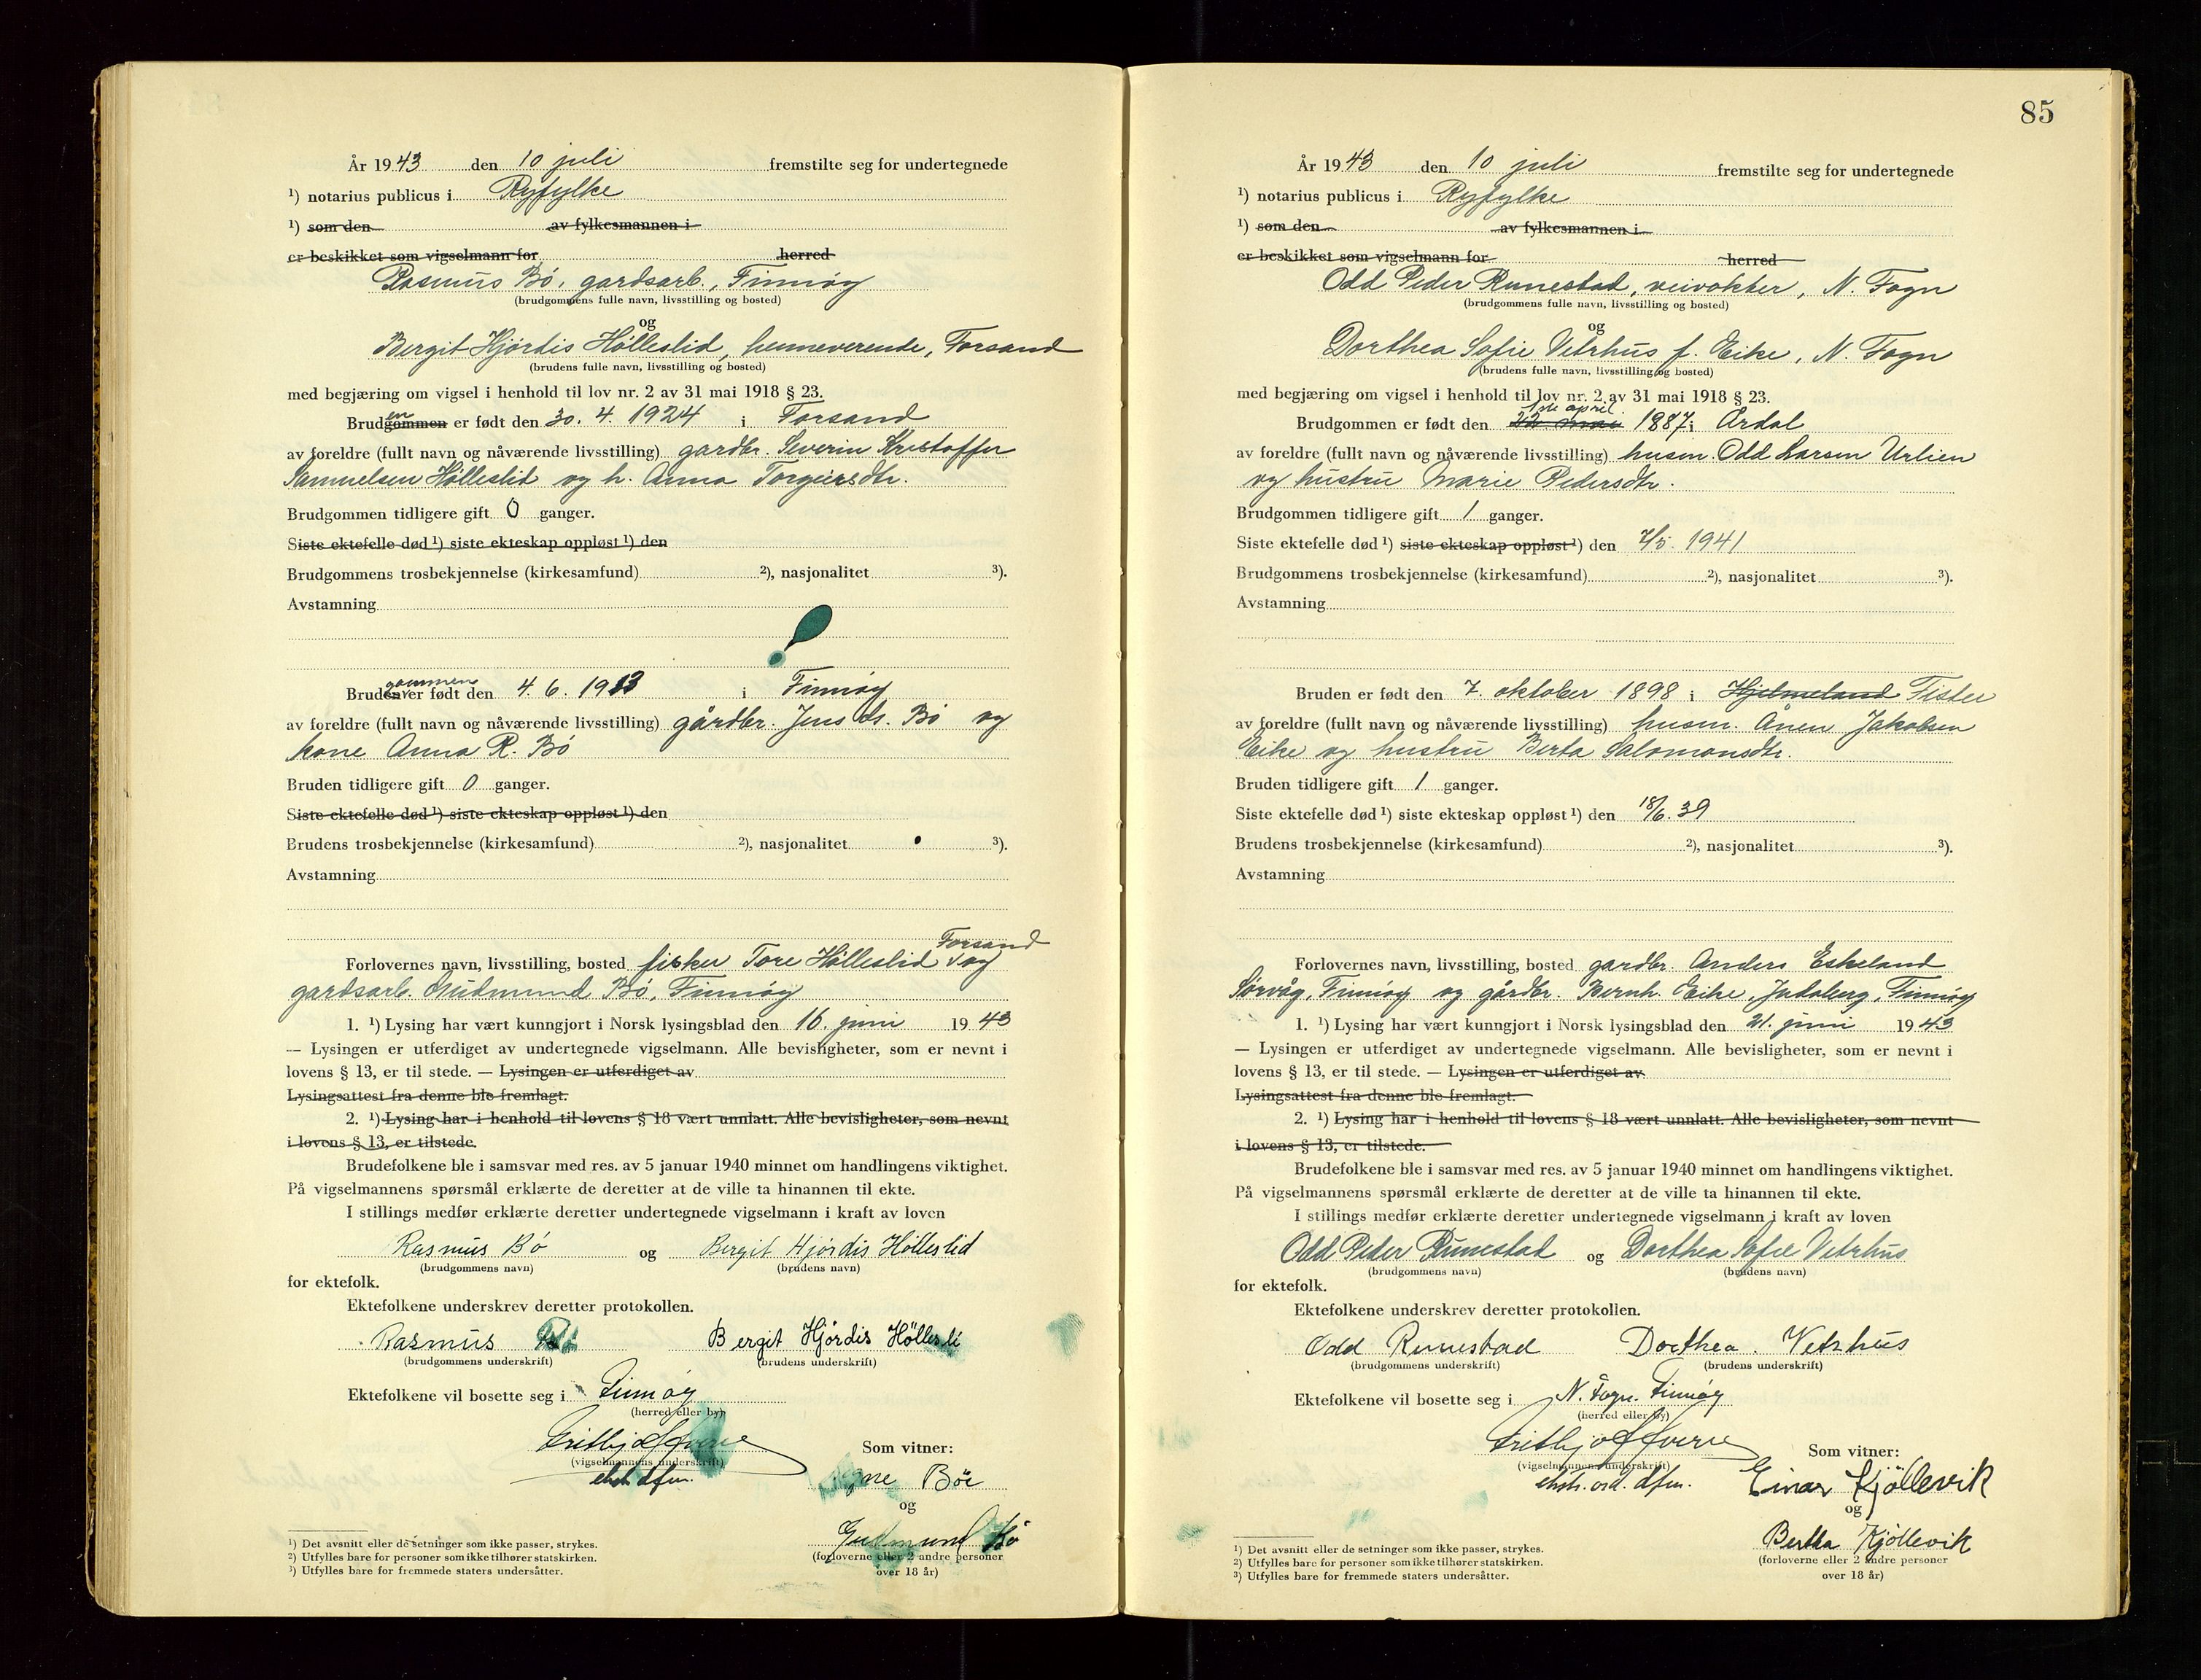 År 1943 den 10 juli fremstilte seg for undertegnede
¹) notarius publicus i Ryfylke
¹) som den av fylkesmannen i
er beskikket som vigselmann for herred
Rasmus Bö, gardsarb., Finnöy
(brudgommens fulle navn, livsstilling og bosted)
og
Bergit Hjördis Hölleslid, hemmeverende, Forsand
(brudens fulle navn, livsstilling og bosted)
med begjæring om vigsel i henhold til lov nr. 2 av 31 mai 1918 § 23.
en
Brudgommen er født den 30. 4. 1924 i Forsand
av foreldre (fullt navn og nåværende livsstilling) gardbr. Severin Kristoffer
Samuelsen Hölleslid og h. Anna Torgeirsdtr.
Brudgommen tidligere gift 0 ganger.
Siste ektefelle død ¹) siste ekteskap oppløst ¹) den
Brudgommens trosbekjennelse (kirkesamfund) ²), nasjonalitet ³).
Avstamning
gommen
Bruden er født den 4. 6. 1913 i Finnöy
av foreldre (fullt navn og nåværende livsstilling) gårdbr. Jens Bö og
kone Anna R. Bö
Bruden tidligere gift 0 ganger.
Siste ektefelle død ¹) siste ekteskap oppløst ¹) den
Brudens trosbekjennelse (kirkesamfund) ²), nasjonalitet ³).
Avstamning
Forsand
Forlovernes navn, livsstilling, bosted fisker Tore Hölleslid og
gardsarb. Gudmund Bö, Finnöy
1. ¹) Lysing har vært kunngjort i Norsk lysingsblad den 16. juni 1943
— Lysingen er utferdiget av undertegnede vigselmann. Alle bevisligheter, som er nevnt i
lovens § 13, er til stede. — Lysingen er utferdiget av
Lysingsattest fra denne ble fremlagt.
2. ¹) Lysing har i henhold til lovens § 18 vært unnlatt. Alle bevisligheter, som nevnt
i lovens § 13, er tilstede.
Brudefolkene ble i samsvar med res. av 5 januar 1940 minnet om handlingens viktighet.
På vigselmannens spørsmål erklærte de deretter at de ville ta hinannen til ekte.
I stillings medfør erklærte deretter undertegnede vigselmann i kraft av loven
Rasmus Bö og Bergit Hjördis Hölleslid
(brudgommens navn) (brudens navn)
for ektefolk.
Ektefolkene underskrev deretter protokollen.
Rasmus Bergit Hjördis Höllesli
(brudgommens underskrift) (brudens underskrift)
Ektefolkene vil bosette seg i Finnöy
(herred eller by)
(vigselmannens underskrift)
Som vitner:
Böe
og
Gudmund Bö
(forloverne eller 2 andre personer
over 18 år)
¹) Det avsnitt eller de setninger som ikke passer, strykes.
²) Utfylles bare for personer som ikke tilhører statskirken.
³) Utfylles bare for fremmede staters undersåtter.
85
År 1943 den 10 juli fremstilte seg for undertegnede
¹) notarius publicus i Ryfylke
¹) som den av fylkesmannen i
er beskikket som vigselmann for herred
Odd Peder Runestad, veivokter, N. Fogn
(brudgommens fulle navn, livsstilling og bosted)
og
Dorthea Sofie Vetrhus f. Eike, N. Fogn
(brudens fulle navn, livsstilling og bosted)
med begjæring om vigsel i henhold til lov nr. 2 av 31 mai 1918 § 23.
1ste april
Brudgommen er født den 22 mai 1887 i Årdal
av foreldre (fullt navn og nåværende livsstilling) husm. Odd Larsen Urlien
og hustru Marie Pedersdtr.
Brudgommen tidligere gift 1 ganger.
Siste ektefelle død ¹) siste ekteskap oppløst ¹) den 7/5. 1941
Brudgommens trosbekjennelse (kirkesamfund) ²), nasjonalitet ³).
Avstamning
Bruden er født den 7. oktober 1898 i Hjelmeland Fister
av foreldre (fullt navn og nåværende livsstilling) husm. Ånen Jakobsen
Eike og hustru Berta Salomonsdtr.
Bruden tidligere gift 1 ganger.
Siste ektefelle død ¹) siste ekteskap oppløst ¹) den 18/6. 39
Brudens trosbekjennelse (kirkesamfund) ²), nasjonalitet ³).
Avstamning
Forlovernes navn, livsstilling, bosted gardbr. Anders Eskeland
Sørvåg, Finnöy og gårdbr. Bernh. Eike, Judaberg, Finnöy
1. ¹) Lysing har vært kunngjort i Norsk lysingsblad den 21. juni 1943
— Lysingen er utferdiget av undertegnede vigselmann. Alle bevisligheter, som er nevnt i
lovens § 13, er til stede. — Lysingen er utferdiget av
Lysingsattest fra denne ble fremlagt.
2. ¹) Lysing har i henhold til lovens § 18 vært unnlatt. Alle bevisligheter, som nevnt
i lovens § 13, er tilstede.
Brudefolkene ble i samsvar med res. av 5 januar 1940 minnet om handlingens viktighet.
På vigselmannens spørsmål erklærte de deretter at de ville ta hinannen til ekte.
I stillings medfør erklærte deretter undertegnede vigselmann i kraft av loven
Odd Peder Runestad og Dorthea Sofie Vetrhus
(brudgommens navn) (brudens navn)
for ektefolk.
Ektefolkene underskrev deretter protokollen.
Odd Runestad Dorthea Vetrhus
(brudgommens underskrift) (brudens underskrift)
Ektefolkene vil bosette seg i N. Fogn. Finnöy
(herred eller by)
(vigselmannens underskrift)
ekstr. ord. dfm.
Som vitner:
Einar Kjöllevik
og
Bertha Kjöllevik
(forloverne eller 2 andre personer
over 18 år)
¹) Det avsnitt eller de setninger som ikke passer, strykes.
²) Utfylles bare for personer som ikke tilhører statskirken.
³) Utfylles bare for fremmede staters undersåtter.